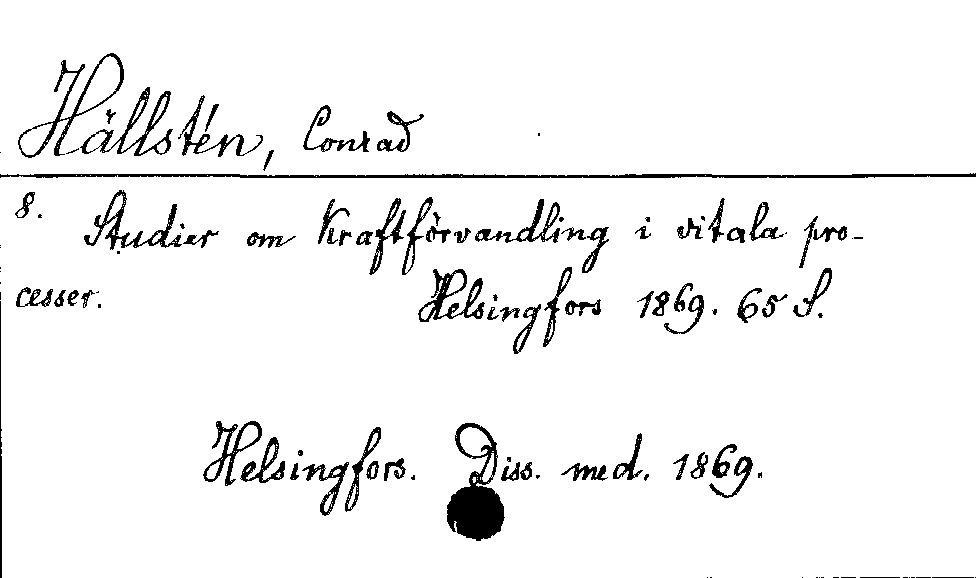 Hällstén, Conrad
8. Studier om Kraftförvandling i vitala pro-
cesser. Helsingfors 1869. 65 S.
Helsingfors. Diss. med. 1869.